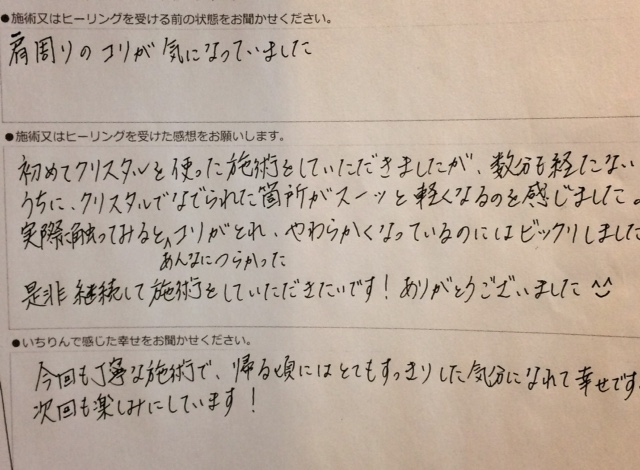 ●施術又はヒーリングを受ける前の状態をお聞かせください。
肩周りのコリが気になっていました
●施術又はヒーリングを受けた感想をお願いします。
初めてクリスタルを使った施術をしていただきましたが、数分も経たない
うちに、クリスタルでなでられた箇所がスーッと軽くなるのを感じました。
実際に触ってみると、コリがとれ、やわらかくなっているのにはビックリしました
あんなにつらかった
是非継続して施術をしていただきたいです！ありがとうございました^^
●いちりんで感じた幸せをお聞かせください。
今回も丁寧な施術で、帰る頃にはとてもすっきりした気分になれて幸せです
次回も楽しみにしています！